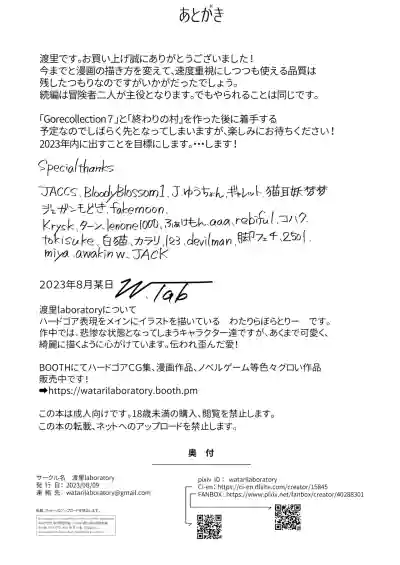 あとがき
渡里です。お買い上げ誠にありがとうございました！
今までと漫画の描き方を変えて、速度重視にしつつも使える品質は
残したつもりなのですがいかがだったでしょう。
続編は冒険者二人が主役となります。でもやられることは同じです。
「Gorecollection７」と「終わりの村」を作った後に着手する
予定なのでしばらく先となってしまいますが、楽しみにお待ちください！
2023年内に出すことを目標にします。・・・します！
Special thanks
JACCS、BloodyBlossom1、J.ゆうちゃん、ギャレット、猫耳妖夢夢
ジェガンもどき、fakemoon、
Krysk、ターン、lenone1000、ふぁけもん、aaa、rebiful、コハク、
tokisuke、白猫、カラリ、123、devilman、脚フェチ、2501、
miya、awakin w、JACK
2023年8月某日 W.lab
渡里laboratoryについて
ハードゴア表現をメインにイラストを描いている　わたりらぼらとりー　です。
作中では、悲惨な状態となってしまうキャラクター達ですが、あくまで可愛く、
綺麗に描くように心がけています。伝われ歪んだ愛！
BOOTHにてハードゴアCG集、漫画作品、ノベルゲーム等色々グロい作品
販売中です！
➡https://watarilaboratory.booth.pm
この本は成人向けです。18歳未満の購入、閲覧を禁止します。
この本の転載、ネットへのアップロードを禁止します。
奥　付
サークル名　渡里laboratory
発 行 日：2023/08/09
連 絡 先：watarilaboratory@gmail.com
pixiv iD：　watarilaboratory
Ci-en：https://ci-en.dlsite.com/creator/15845
FANBOX：https://www.pixiv.net/fanbox/creator/40288301